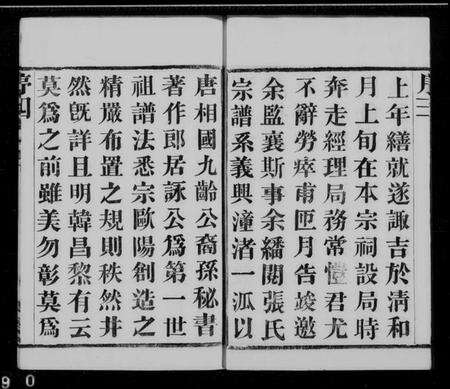 序三
上年繕就遂諏吉於清和
月上旬在本宗祠設局時
奔走經理局務常愷君尤
不辭勞瘁甫匝月告竣邀
余監襄斯事余繙閱張氏
宗譜系義興潼渚一派以
唐相國九齡公裔孫秘書
著作郎居詠公為第一世
祖譜法悉宗歐陽創造之
精嚴布置之規則秩然井
然旣詳且明韓昌黎有云
莫為之前雖美勿彰莫為
序四
9 0